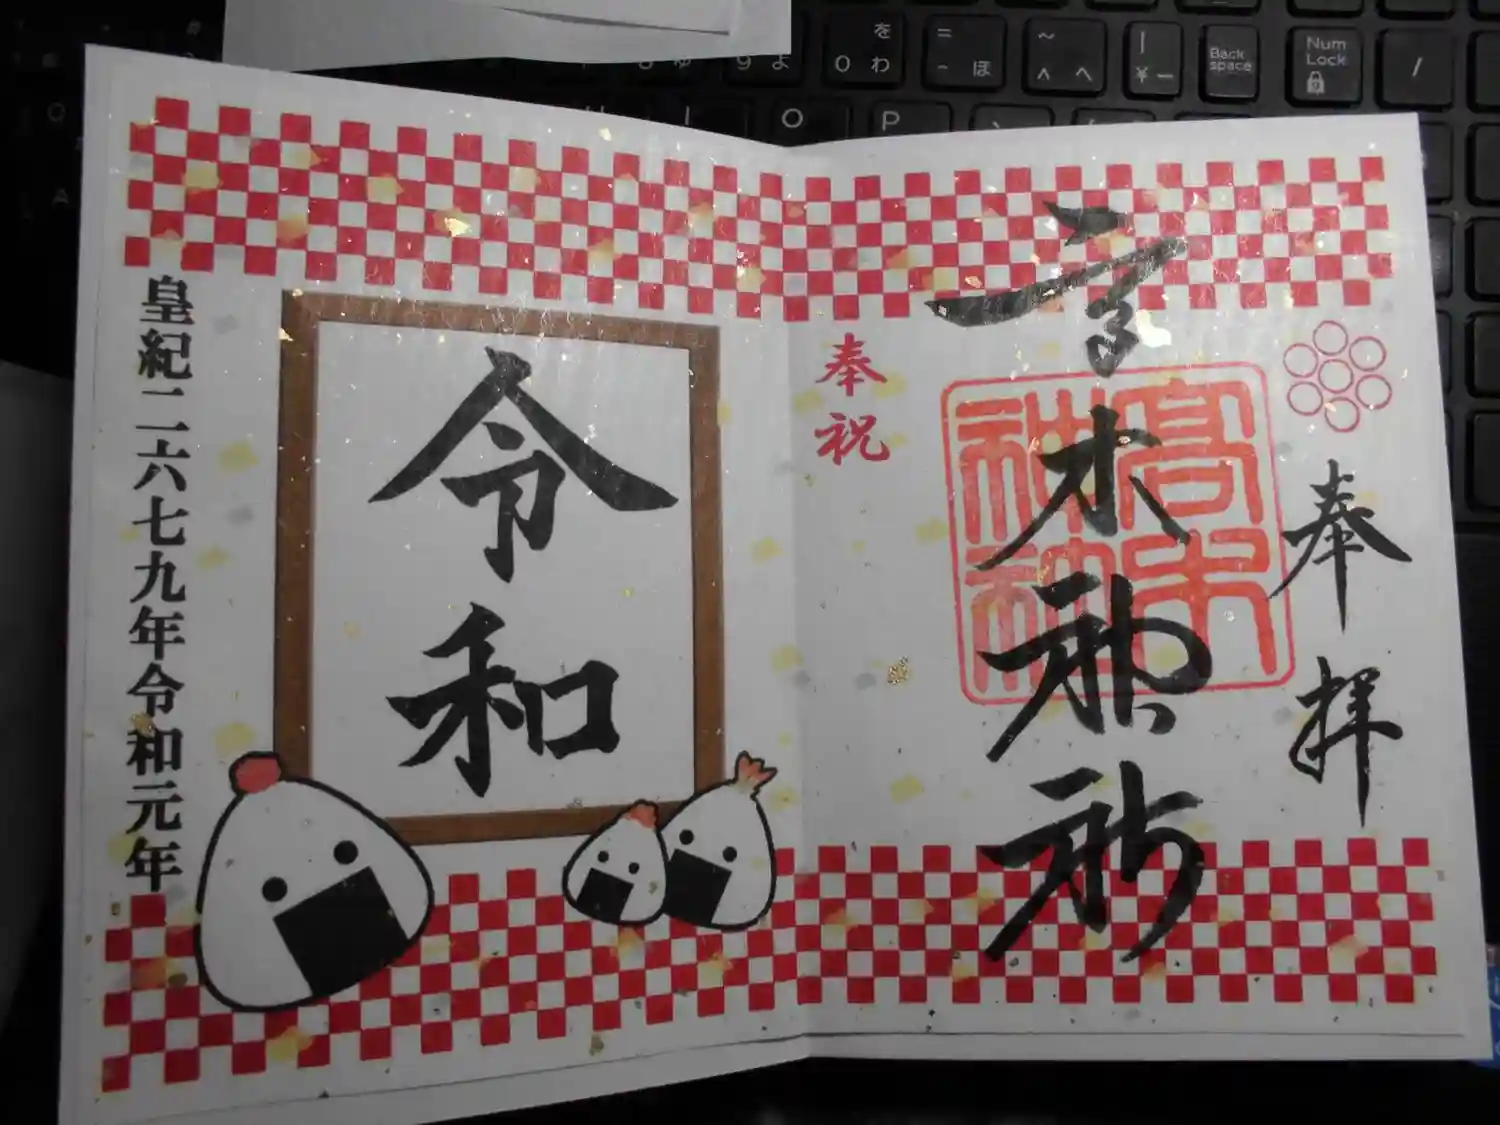 奉拝
高木神社
高木神社
奉祝
令和
皇紀二六七九年令和元年
を
0 わ
= - ほ
~ ^ へ
| ¥ ー
Back space
Num Lock
/
9 よ
I
O
P
A